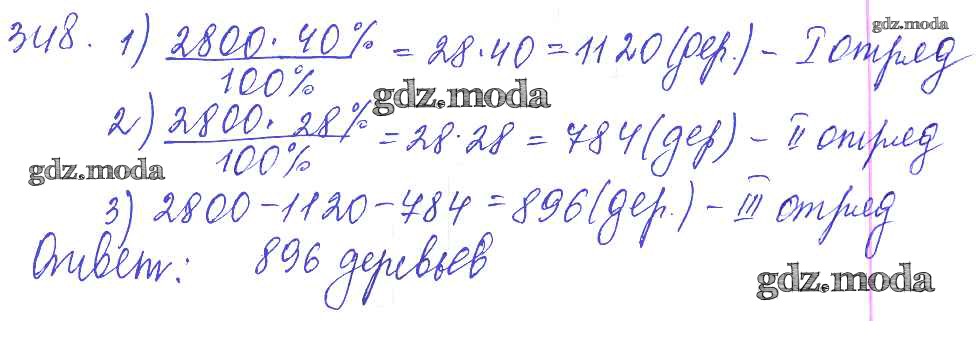 gdz.moda
348. 1) 2800 · 40% / 100% = 28 · 40 = 1120 (дер.) – I отряд
gdz.moda
2) 2800 · 28% / 100% = 28 · 28 = 784 (дер) – II отряд
gdz.moda
3) 2800 – 1120 – 784 = 896 (дер.) – III отряд
Ответ: 896 деревьев
gdz.moda